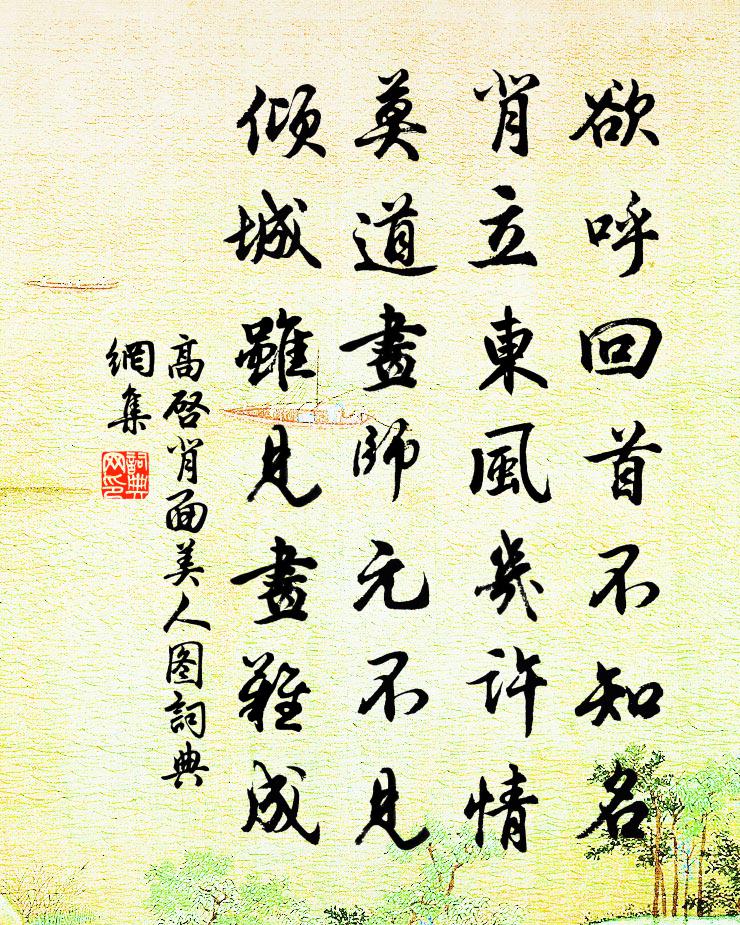 欲呼回首不知名
背立東風幾許情
莫道畫師元不見
傾城雖見畫難成
高啓背面美人图詞典
網集
詞典
网印